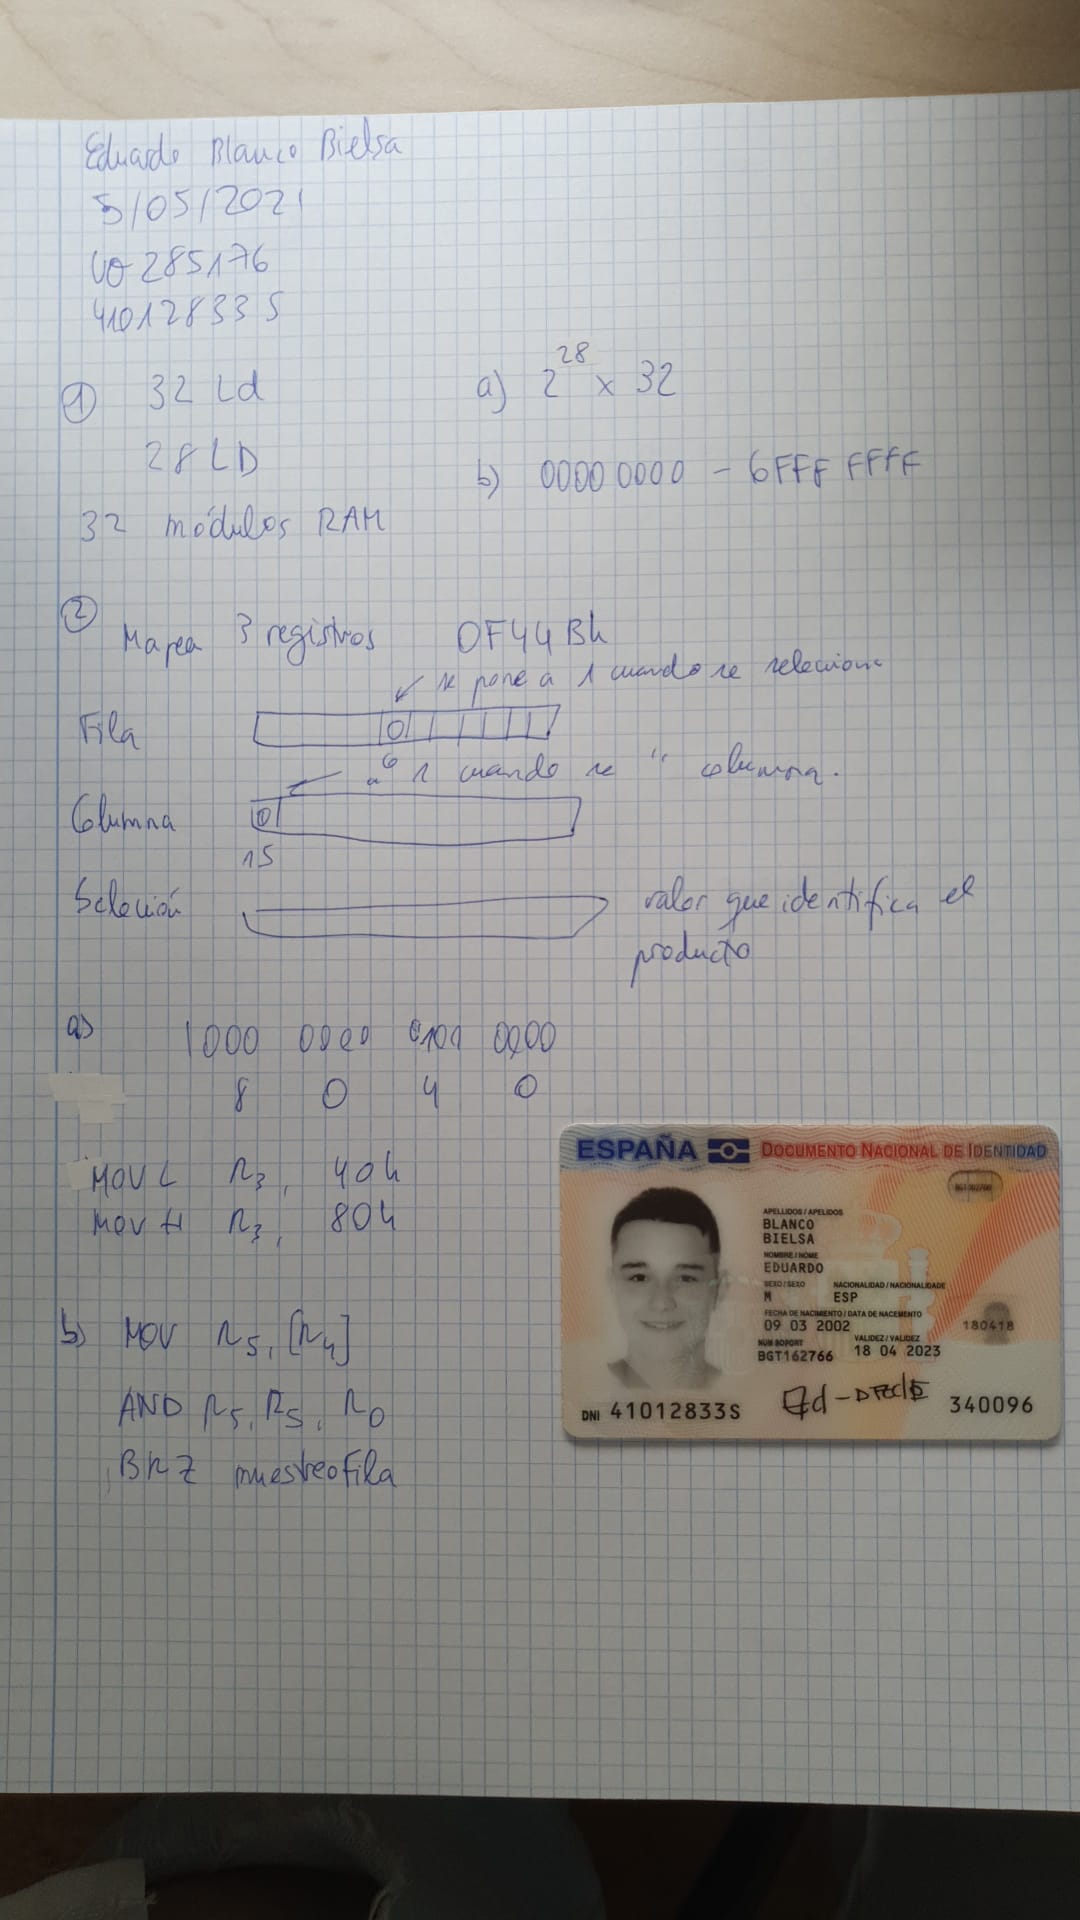 Eduardo Blanco Bielsa
5/05/2021
UO 285176
41012833 S
1 32 Ld
28 LD
32 módulos RAM
a) 2^28 x 32
b) 0000 0000 - 6FFF FFFF
2 Mapea 3 registros 0F44Bh
se pone a 1 cuando se seleciona
Fila 0
a 1 cuando se " columna.
Columna 0
15
Seleción valor que identifica el
producto
a) 1000 0000 0100 0000
8 0 4 0
MOVL R3, 40h
MOVH R3, 80h
b) MOV R5, [R4]
AND R5, R5, R0
BRZ muestreoFila
ESPAÑA DOCUMENTO NACIONAL DE IDENTIDAD
APELLIDOS / APELIDOS
BLANCO
BIELSA
NOMBRE / NOME
EDUARDO
SEXO / SEXO NACIONALIDAD / NACIONALIDADE
M ESP
FECHA DE NACIMIENTO / DATA DE NACEMENTO
09 03 2002
NUM SOPORT VALIDEZ / VALIDEZ
BGT162766 18 04 2023
180418
DNI 41012833S
340096